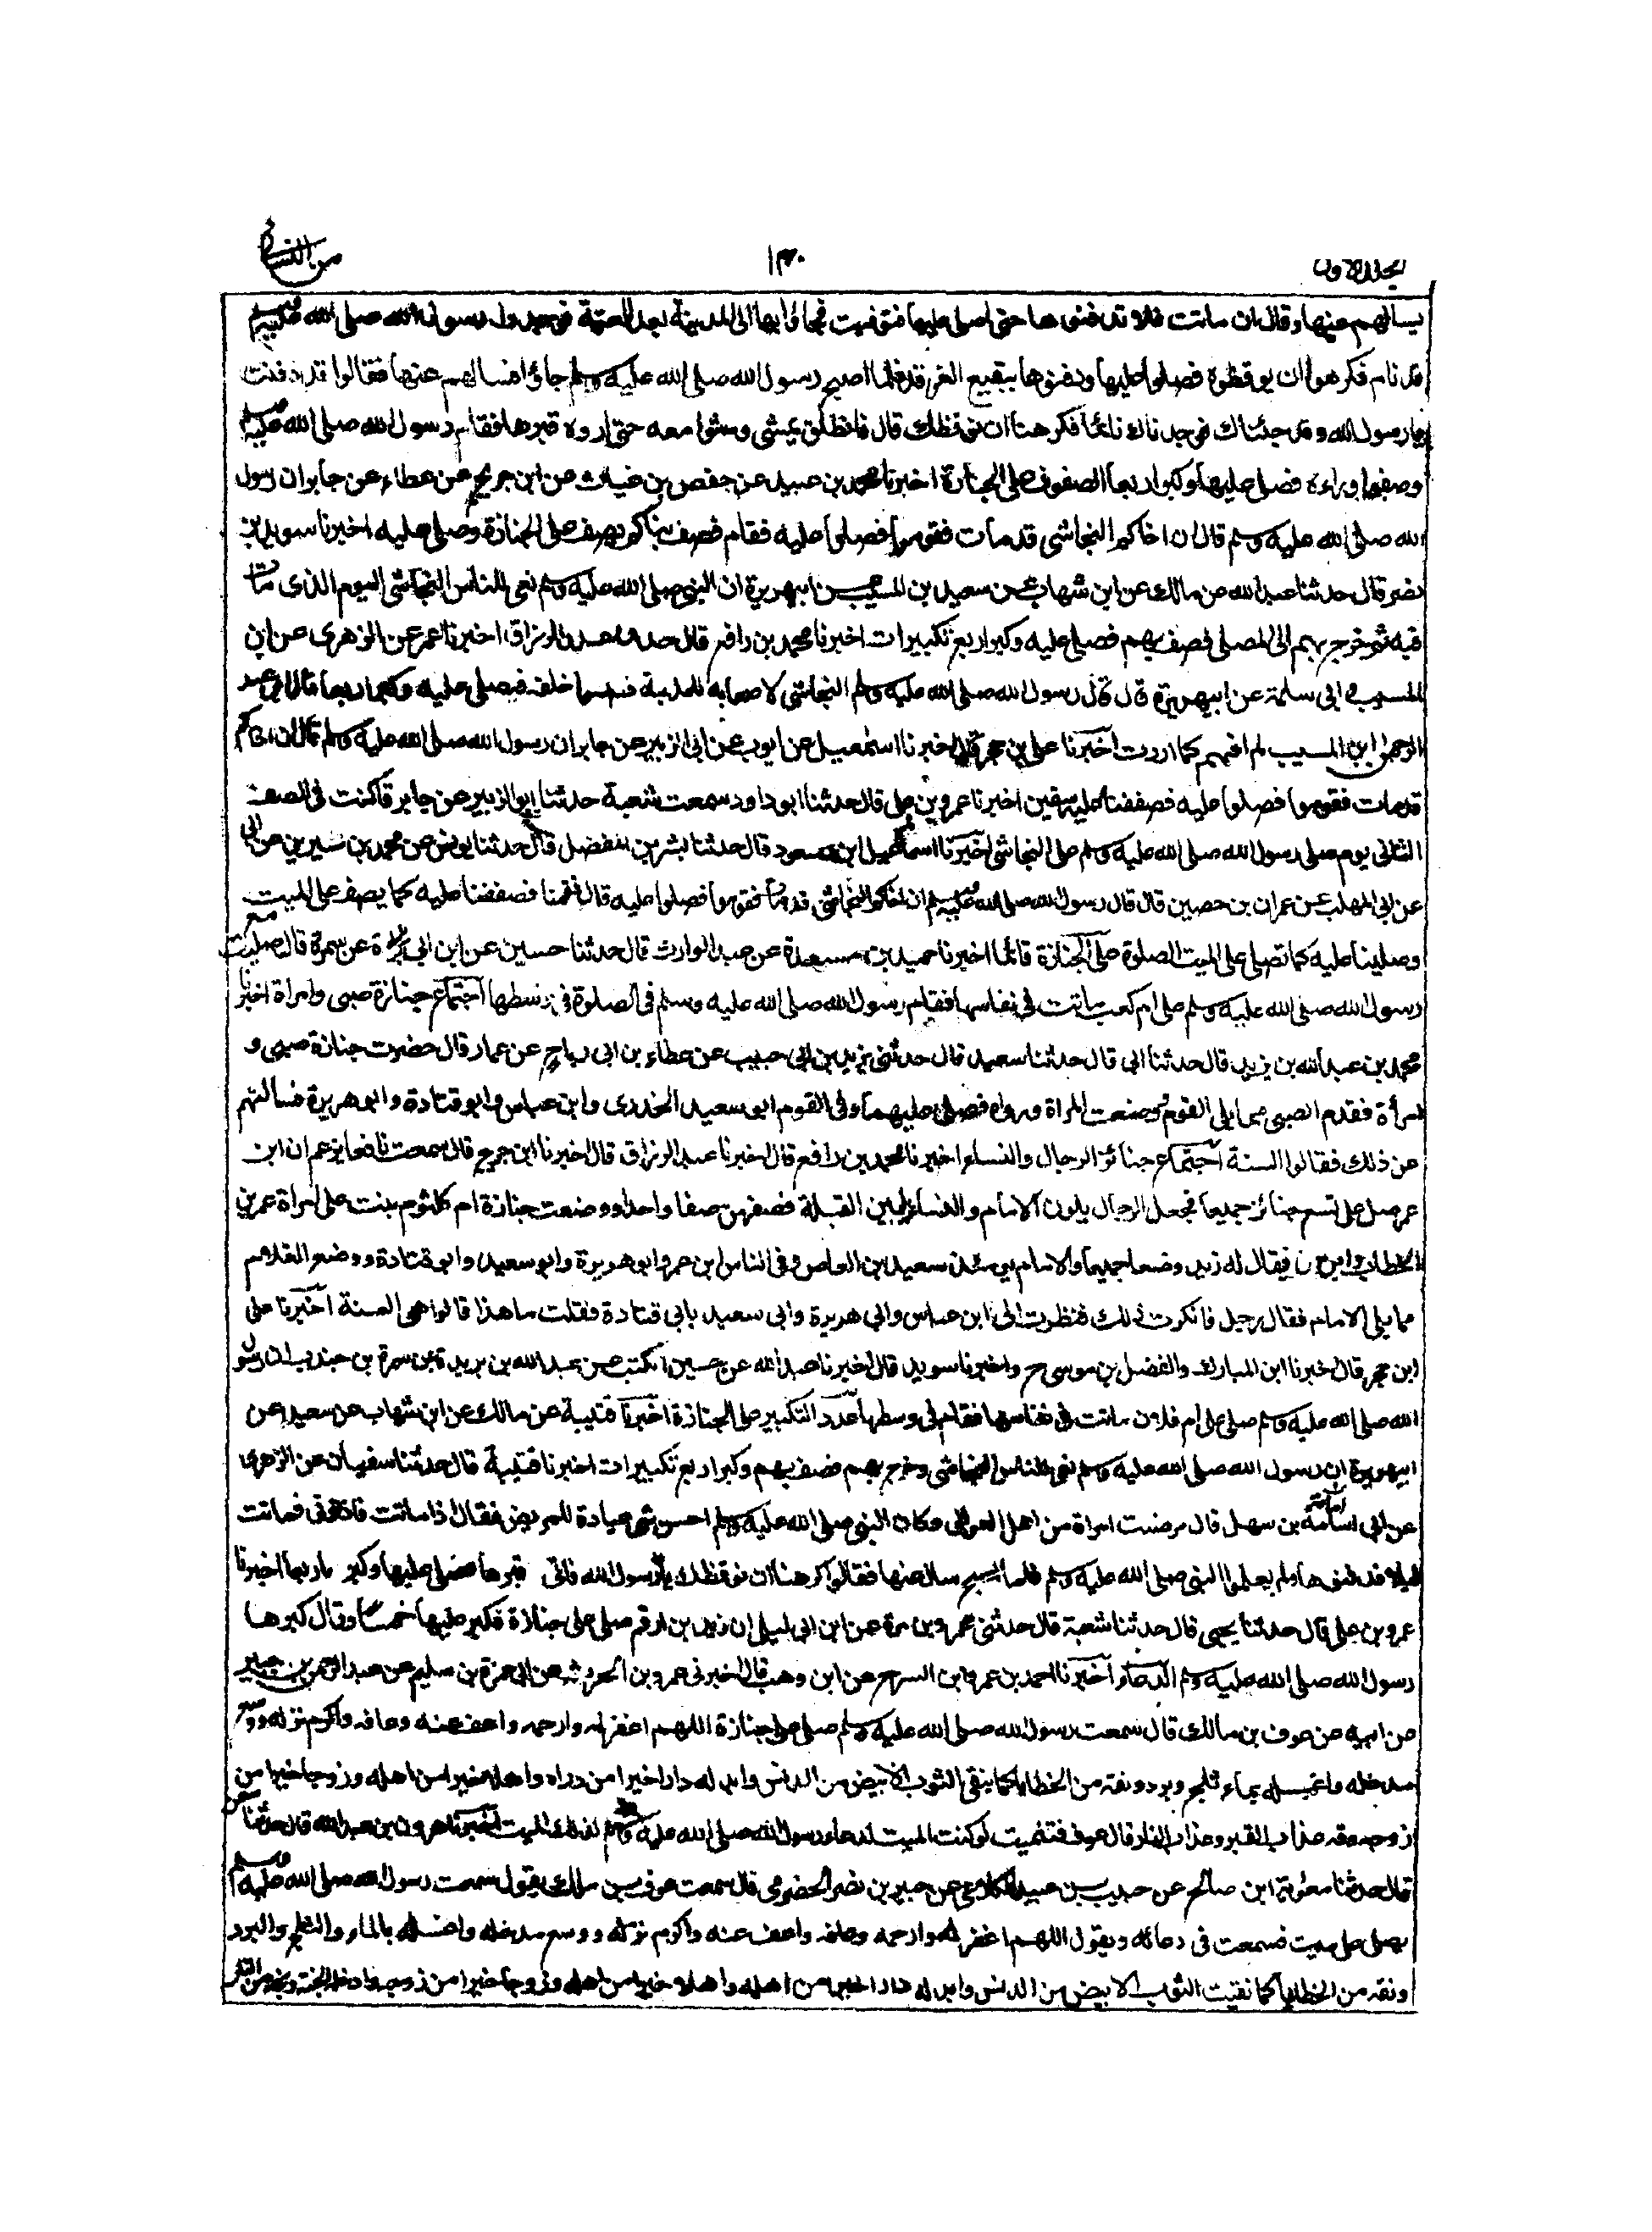 الجلد الاول ١٣٠ من النسائي
يسالهم عنها وقال ان ماتت فلا تدفنوها حتى اصلى عليها فتوفيت فجاؤا بها الى المدينة بعد العتمة فوجدوا رسول الله صلى الله عليه وسلم
قد نام فكرهوا ان يوقظوه فصلوا عليها ودفنوها ببقيع الغرقد فلما اصبح رسول الله صلى الله عليه وسلم جاؤا فسالهم عنها فقالوا قد دفنت
يا رسول الله وقد جئناك فوجدناك نائما فكرهنا ان نوقظك قال فانطلق يمشى ومشوا معه حتى اروه قبرها فقام رسول الله صلى الله عليه وسلم
وصفوا وراءه فصلى عليها وكبر اربعا الصفوف على الجنازة اخبرنا محمد بن عبيد عن حفص بن غياث عن ابن جريج عن عطاء عن جابر ان رسول
الله صلى الله عليه وسلم قال ان اخاكم النجاشى قد مات فقوموا فصلوا عليه فقام فصف بنا كما يصف على الجنازة وصلى عليه اخبرنا سويد بن
نصر قال حدثنا عبد الله عن مالك عن ابن شهاب عن سعيد بن المسيب عن ابيهريرة ان النبى صلى الله عليه وسلم نعى للناس النجاشى اليوم الذى مات
فيه ثم خرج بهم الى المصلى فصف بهم فصلى عليه وكبر اربع تكبيرات اخبرنا محمد بن رافع قال حدثنا عبد الرزاق اخبرنا معمر عن الزهرى عن ابن
المسيب وابى سلمة عن ابيهريرة قال نعى رسول الله صلى الله عليه وسلم النجاشى لاصحابه بالمدينة فصفوا خلفه فصلى عليه وكبر اربعا قال ابو عبد
الرحمن ابن المسيب لم افهم كما اردت اخبرنا على بن حجر قال اخبرنا اسمعيل عن ايوب عن ابى الزبير عن جابر ان رسول الله صلى الله عليه وسلم قال ان اخاكم
قد مات فقوموا فصلوا عليه فصففنا عليه صفين اخبرنا عمرو بن على قال حدثنا ابو داود سمعت شعبة حدثنا ابو الزبير عن جابر قال كنت فى الصف
الثانى يوم صلى رسول الله صلى الله عليه وسلم على النجاشى اخبرنا اسمعيل ابن مسعود قال حدثنا بشر بن المفضل قال حدثنا يونس عن محمد بن سيرين
عن ابى المهلب عن عمران بن حصين قال قال رسول الله صلى الله عليه وسلم ان اخاكم النجاشى قد مات فقوموا فصلوا عليه قال فقمنا فصففنا عليه كما يصف على الميت
وصلينا عليه كما تصلى على الميت الصلوة على الجنازة قائما اخبرنا حميد بن مسعدة عن عبد الوارث قال حدثنا حسين عن ابن ابى بريدة عن سمرة قال صليت مع
رسول الله صلى الله عليه وسلم على ام كعب ماتت فى نفاسها فقام رسول الله صلى الله عليه وسلم فى الصلوة فى وسطها اجتماع جنازة صبى وامراة اخبرنا
محمد بن عبد الله بن يزيد قال حدثنا ابى قال حدثنا سعيد قال حدثنى يزيد بن ابى حبيب عن عطاء بن ابى رباح عن عمار قال حضرت جنازة صبى و
امرأة فقدم الصبى مما يلى القوم ووضعت المراة وراءه فصلى عليهما وفى القوم ابو سعيد الخدرى وابن عباس وابو قتادة وابو هريرة فسالتهم
عن ذلك فقالوا السنة اجتماع جنائز الرجال والنساء اخبرنا محمد بن رافع قال اخبرنا عبد الرزاق قال اخبرنا ابن جريج قال سمعت نافعا يزعم ان ابن
عمر صلى على تسع جنائز جميعا فجعل الرجال يلون الامام والنساء يلين القبلة فصفهن صفا واحدا ووضعت جنازة ام كلثوم بنت على امراة عمر بن
الخطاب وابن لها يقال له زيد وضعا جميعا والامام يومئذ سعيد بن العاص وفى الناس ابن عمر وابو هريرة وابو سعيد وابو قتادة ووضع الغلام
مما يلى الامام فقال رجل فانكرت ذلك فنظرت الى ابن عباس وابى هريرة وابى سعيد وابى قتادة فقلت ما هذا قالوا هى السنة اخبرنا على
ابن حجر قال اخبرنا ابن المبارك والفضل بن موسى ح واخبرنا سويد قال اخبرنا عبد الله عن حسين المكتب عن عبد الله بن بريدة عن سمرة بن جندب ان رسول
الله صلى الله عليه وسلم صلى على ام فلان ماتت فى نفاسها فقام فى وسطها عدد التكبير على الجنازة اخبرنا قتيبة عن مالك عن ابن شهاب عن سعيد عن
ابيهريرة ان رسول الله صلى الله عليه وسلم نعى للناس النجاشى وخرج بهم فصف بهم وكبر اربع تكبيرات اخبرنا قتيبة قال حدثنا سفيان عن الزهرى
عن ابى امامة بن سهل قال مرضت امراة من اهل العوالى وكان النبى صلى الله عليه وسلم احسن شى عيادة للمريض فقال اذا ماتت فاذنونى فماتت
ليلا فدفنوها ولم يعلموا النبى صلى الله عليه وسلم فلما اصبح سال عنها فقالوا كرهنا ان نوقظك يا رسول الله فاتى قبرها فصلى عليها وكبر اربعا اخبرنا
عمرو بن على قال حدثنا يحيى قال حدثنا شعبة قال حدثنى عمرو بن مرة عن ابن ابى ليلى ان زيد بن ارقم صلى على جنازة فكبر عليها خمسا وقال كبرها
رسول الله صلى الله عليه وسلم الدعاء اخبرنا احمد بن عمرو ابن السرح عن ابن وهب قال اخبرنى عمرو بن الحارث عن ابى حمزة بن سليم عن عبد الرحمن بن جبير
عن ابيه عن عوف بن مالك قال سمعت رسول الله صلى الله عليه وسلم صلى على جنازة اللهم اغفر له وارحمه واعف عنه وعافه واكرم نزله ووسع
مدخله واغسله بماء وثلج وبرد ونقه من الخطايا كما ينقى الثوب الابيض من الدنس وابدله دارا خيرا من داره واهلا خيرا من اهله وزوجا خيرا من
زوجه وقه عذاب القبر وعذاب النار قال عوف فتمنيت لو كنت الميت لدعاء رسول الله صلى الله عليه وسلم لذلك الميت اخبرنا هرون بن عبد الله قال حدثنا معن
قال حدثنا معوية ابن صالح عن حبيب بن عبيد الكلاعى عن جبير بن نفير الحضرمى قال سمعت عوف بن مالك يقول سمعت رسول الله صلى الله عليه وسلم
يصلى على ميت فسمعت فى دعائه ويقول اللهم اغفر له وارحمه وعافه واعف عنه واكرم نزله ووسع مدخله واغسله بالماء والثلج والبرد
ونقه من الخطايا كما نقيت الثوب الابيض من الدنس وابدله دارا خيرا من داره واهلا خيرا من اهله وزوجا خيرا من زوجه وادخله الجنة ونجه من النار